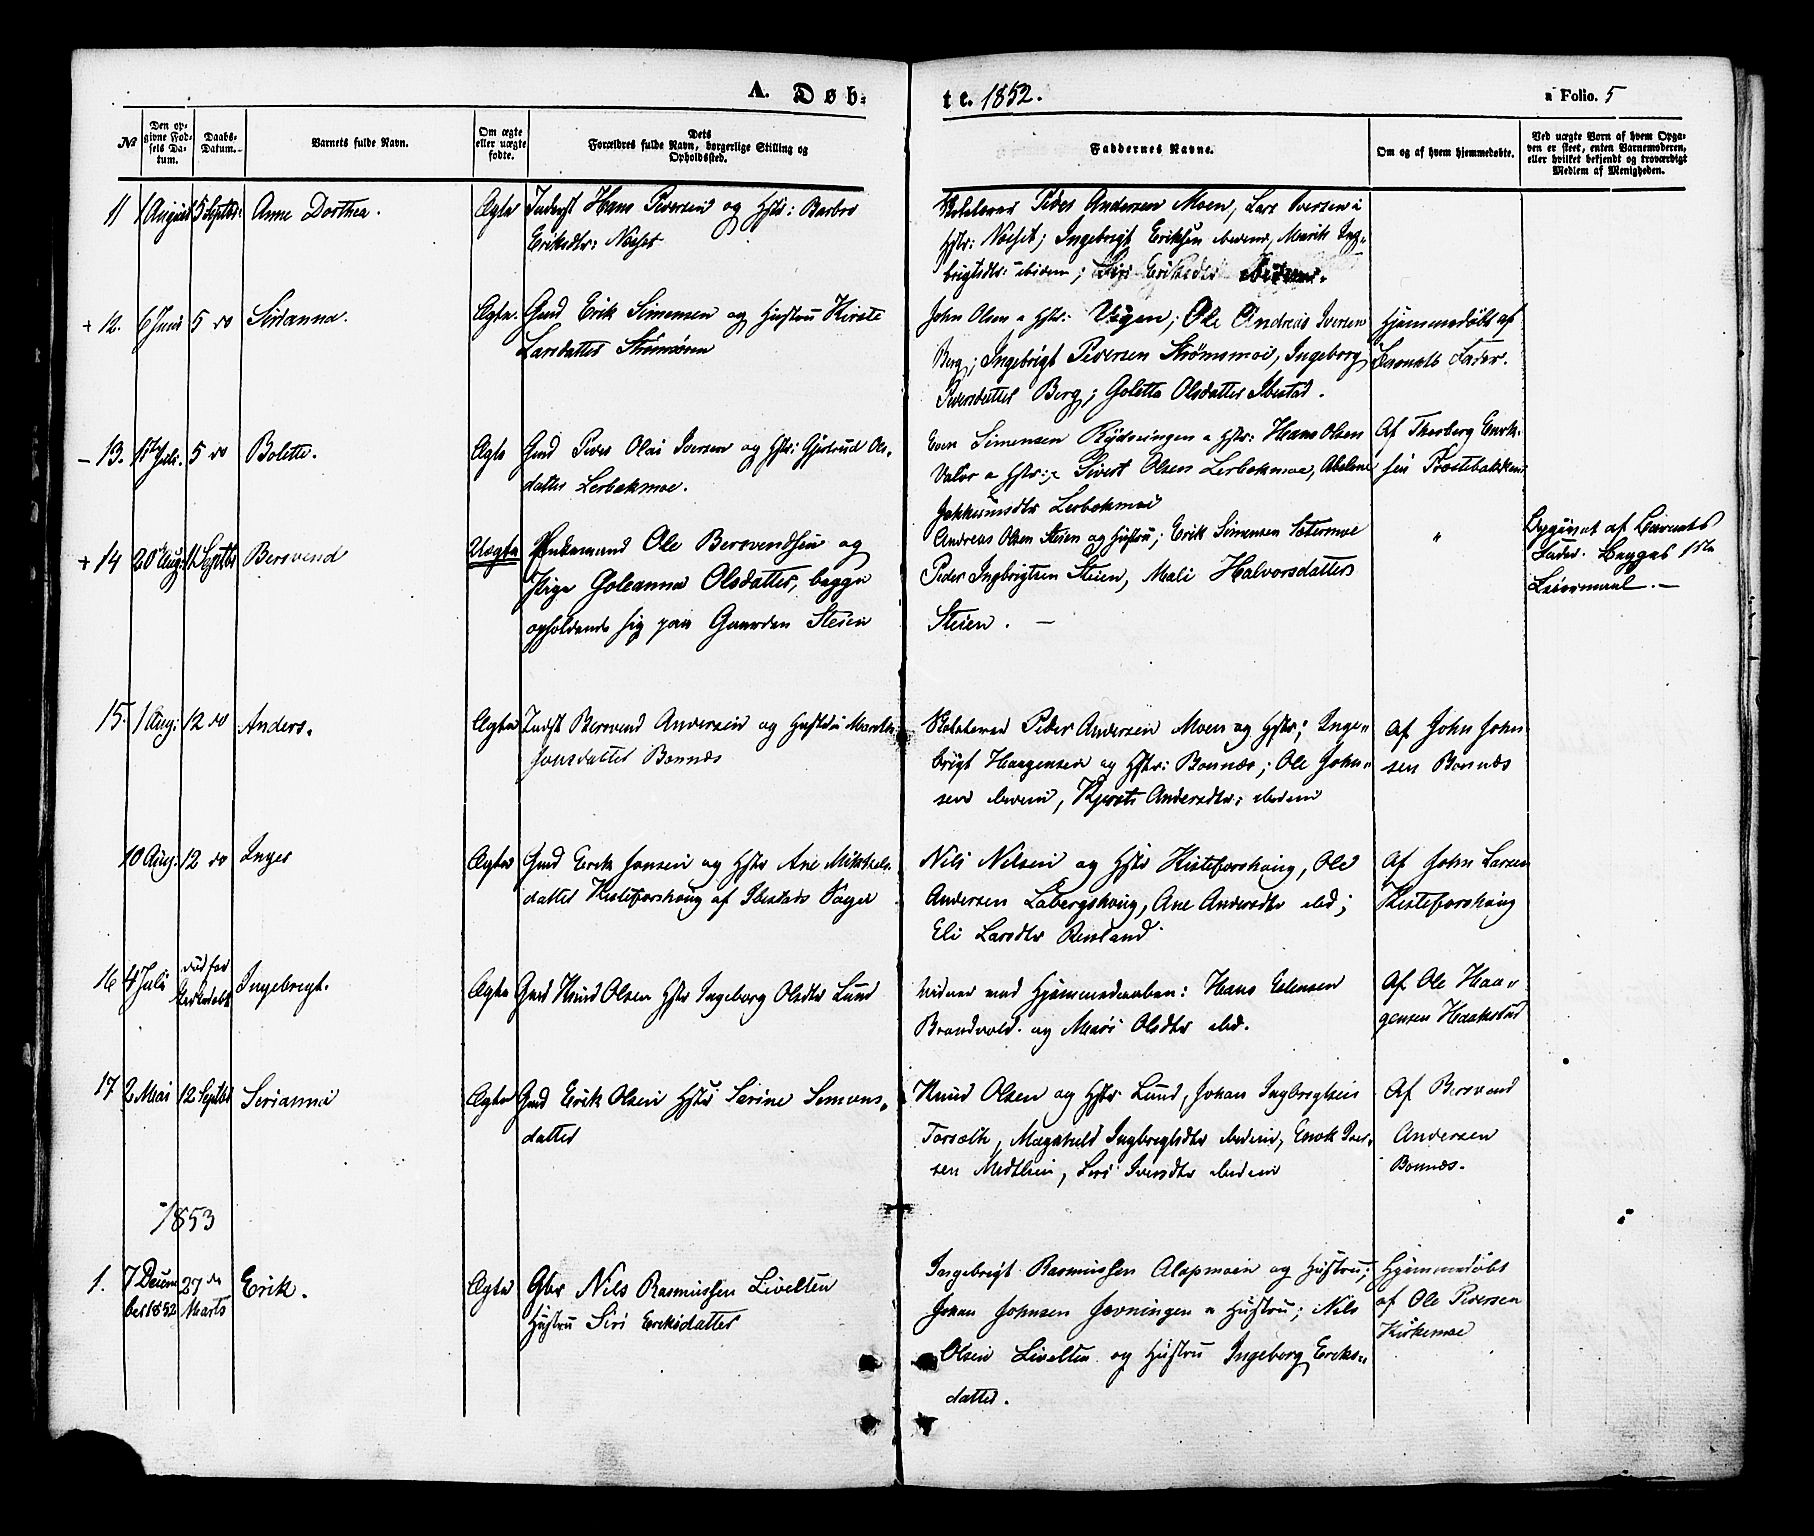 A. Døb-
te. 1852.
a Folio. 5
№
Den opgivne Fødsels Datum.
Daabs-Datum.
Barnets fulde Navn.
Om ægte eller uægte fødte.
Dets Forældres fulde Navn, borgerlige Stilling og Opholdssted.
Faddernes Navne.
Om og af hvem hjemmedøbte.
Ved uægte Børn af hvem Opgaven er skeet, enten Barnemoderen, eller hvilket bekjendt og troværdigt Medlem af Menigheden.
11 1 August 5 Septbr: Anne Dorthea. Ægte Inderst Hans Pedersen og Hstr: Barbro
Eriksdtr: Noeset
Peder Andersen Moen, Lars Iversen a
Hstr: Noeset; Ingebrigt Eriksen ibidem, Marit Ing-
brigtsdtr: ibidem; Siri Eriksdtr ibidem.
+ 12. 6 Juni 5 do Serianna. Ægte. Gmd Erik Simensen og Hustru Kirste
Larsdatter Strømsøren
John Olsen a Hstr: Vigen; Ole Andreas Iversen
Berg; Ingebrigt Pedersen Strømsmoe, Ingeborg
Pedersdatter Berg; Goletta Olsdatter Ibestad.
Hjemmedøbt af
Barnets Fader.
- 13. 1ste Juli. 5 do Bolette. Ægte Gmd Peder Olai Iversen og Hstr: Gjertrud Ols-
datter Lerbekmoe.
Even Simensen Rydningen a Hstr: Hans Olsen
Valør a Hstr:; Sivert Olsen Lerbekmoe, Abelone
Lerbekmoe
Af Thorberg Enok-
sen Prestebakken
+ 14 20 Aug: 11 Septbr Bersvend Uægte Enkemand Ole Bersvendsen og
Pige Goleanna Olsdatter, begge
opholdende sig paa Gaarden Steien
Andreas Olsen Steien og Hustru; Erik Simensen Sætermoe
Peder Ingbrigtsen Steien, Mali Halvorsdatter
Steien. —
"
Opgivet af Barnets
Fader. Begges 1ste
Leiermaal. —
15. 1 Aug: 12 do Anders. Ægte Indst Bersvend Andersen og Hustru Marith
Jonsdatter Bonnæs
Peder Andersen Moen og Hstr; Inge-
brigt Haagensen og Hstr: Bonnæs; Ole John-
sen ibidem, Kjersti Andersdtr: ibidem
Af John John-
sen Bonnæs
10 Aug. 12 do Inger Ægte Gmd Erik Jonsen og Hstr Ane Mikkels-
datter Kisteforshoug af Ibestads Sogn
Nils Nilsen og Hstr Kisteforshoug, Ole
Andersen Labergshoug, Ane Andersdtr ibd;
Eli Larsdtr Renland
Af John Larsen
Kisteforshoug
16 4 Juli død før Ingebrigt. Ægte Gmd Knud Olsen Hstr Ingeborg Olsdtr Lund
Vidner ved Hjemmedaaben: Hans Edensen
Brandvold og Mari Olsdtr ibd.
Af Ole Haa-
gensen Haakstad
17 2 Mai 12 Septbr Serianna Ægte Gmd Erik Olsen Hstr Serine Semons-
datter
Knud Olsen og Hstr Lund, Johan Ingbrigtsen
Forseth, Magnhild Ingbrigtsdtr ibidem, Enok Iver-
sen Medthien, Siri Iversdtr ibidem
Af Bersvend
Andersen
Bonnæs.
1853
1. 7 Decem 27de Erik. Ægte Gbr Nils Rasmussen Livelten
ber 1852 Marts Hustru Siri Eriksdatter
Ingebrigt Rasmussen Alapmoen og Hustru;
Johan Johnsen Jevningen a Hustru; Nils
Olsen Livelten og Hustru Ingeborg Eriks-
datter.
Hjemmedøbt
af Ole Pedersen
Kirkemoe